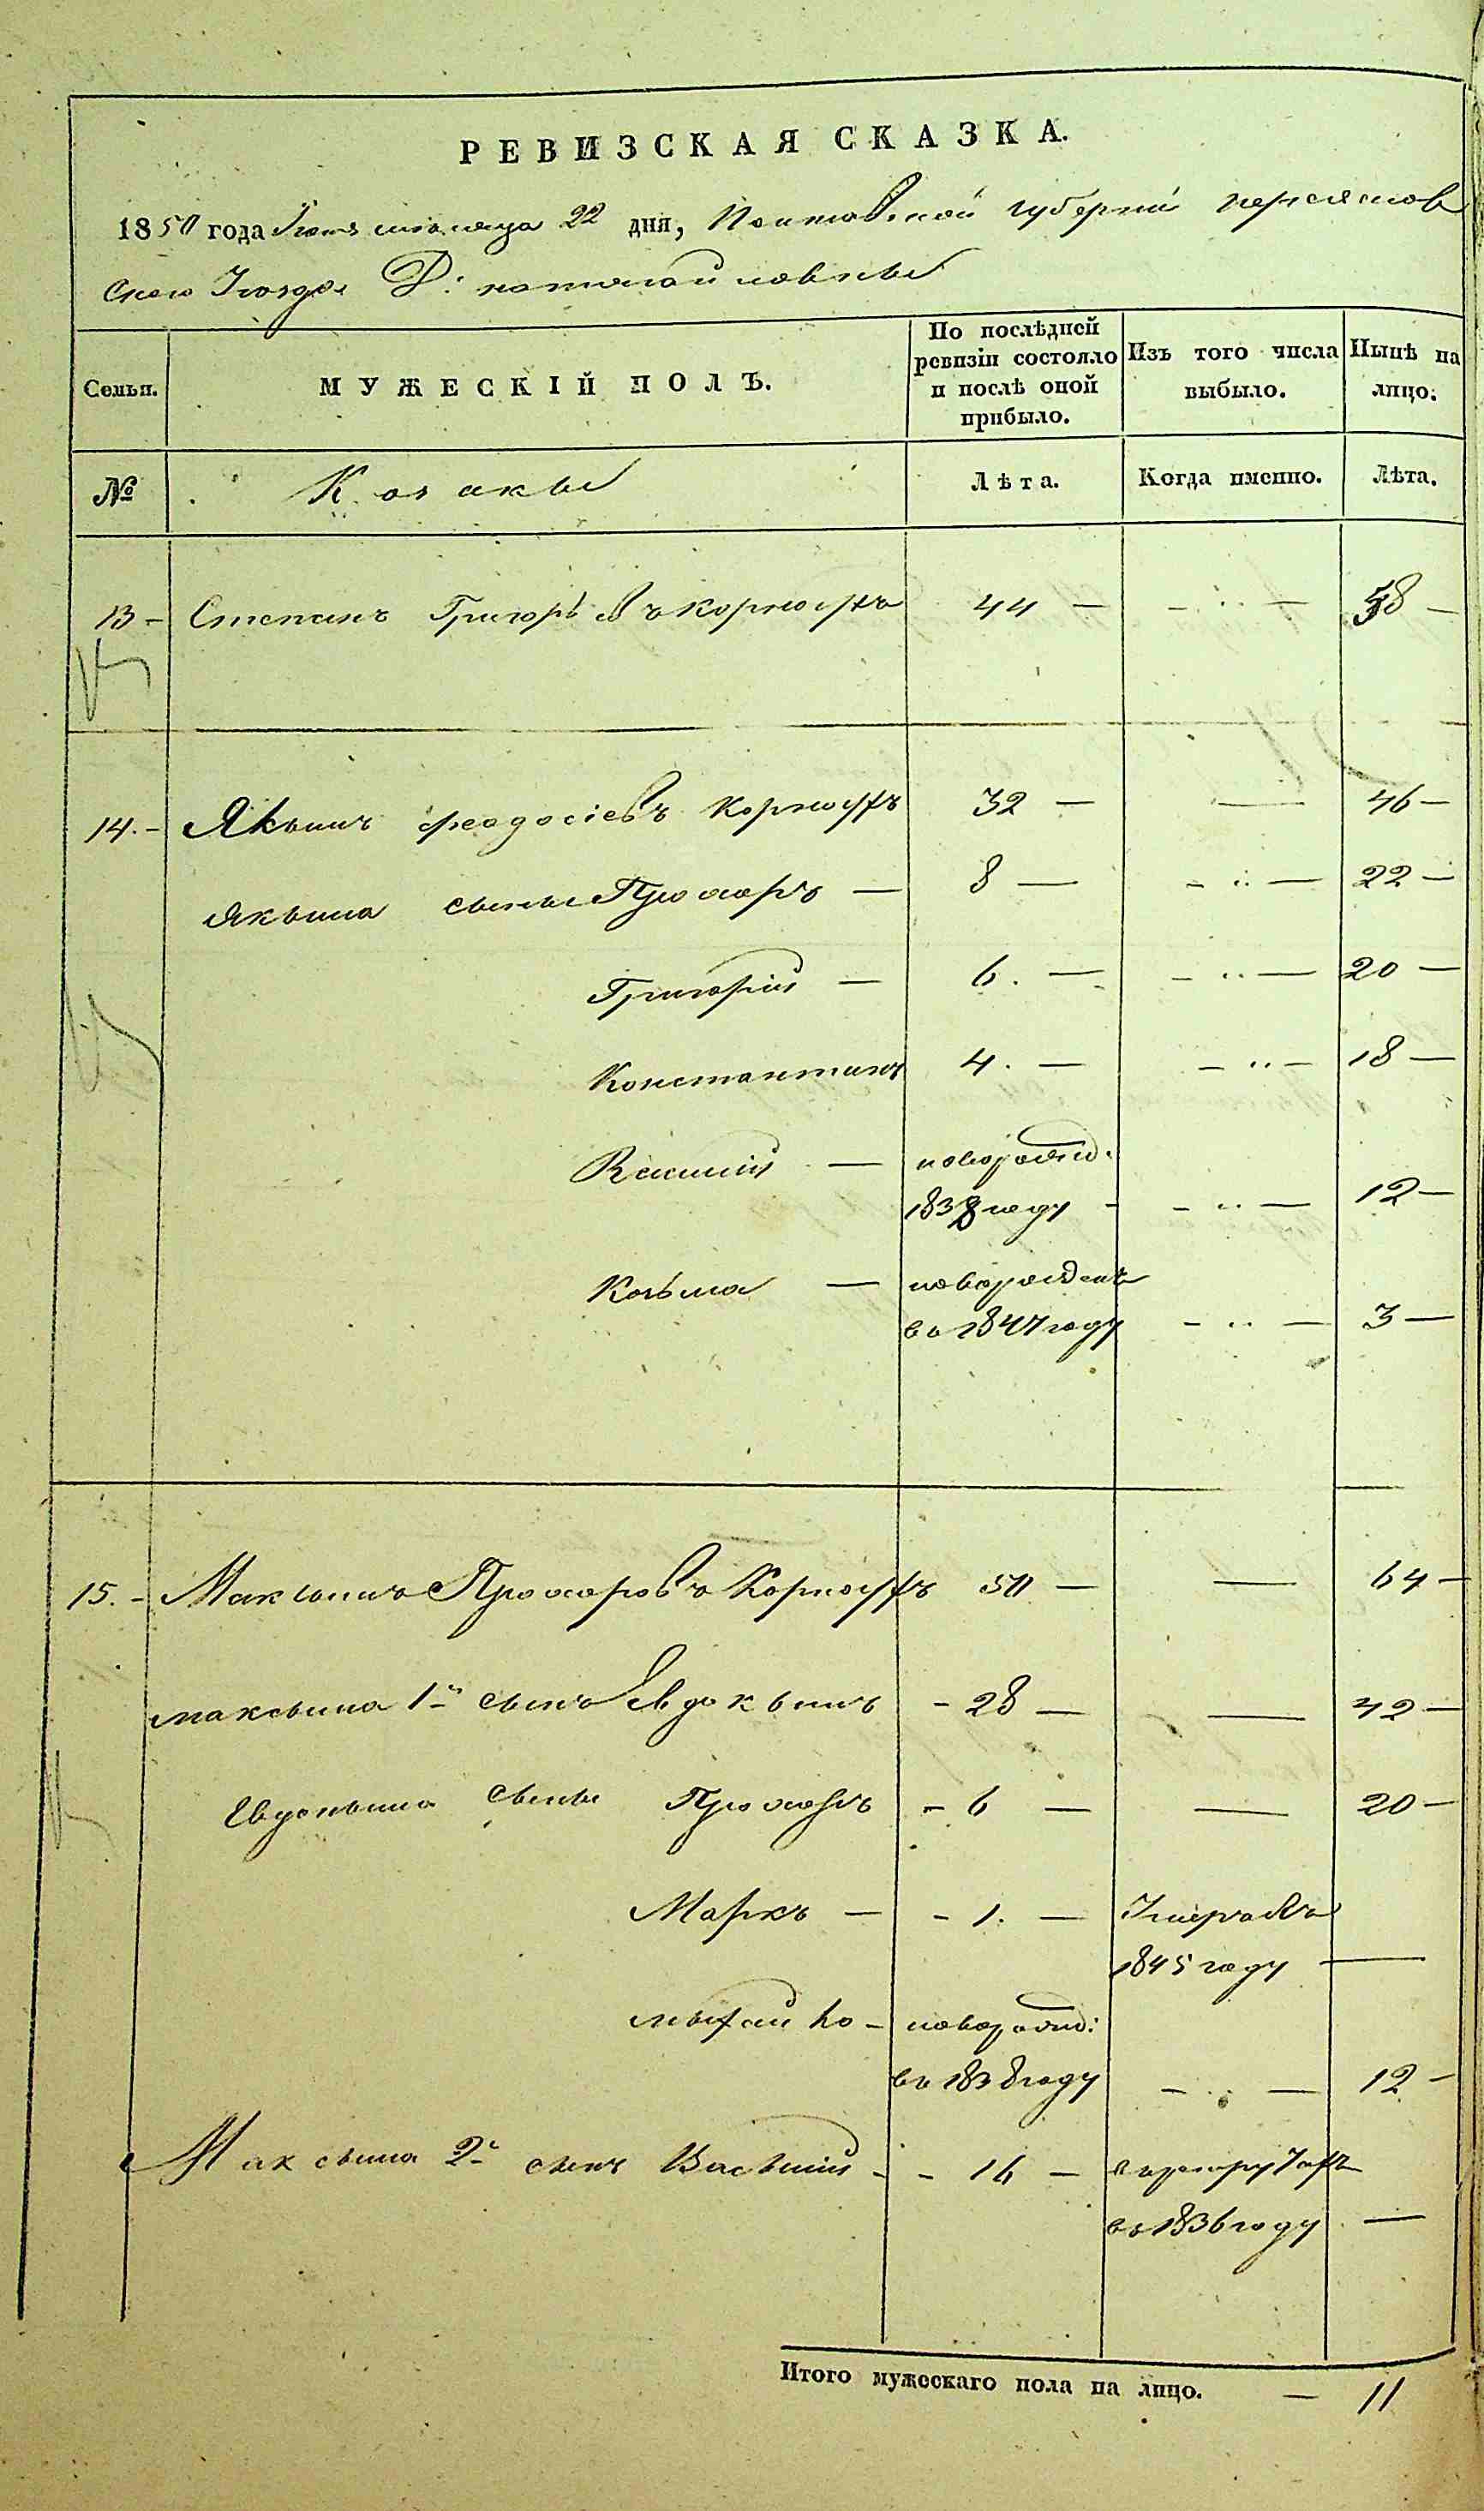 РЕВИЗСКАЯ СКАЗКА.
1850 года Июня месяца 22 дня, Полтавской губернии переяслов
ского уезда Д:
Семьи. МУЖЕСКІЙ ПОЛЪ. По послѣдней ревизіи состояло и послѣ оной прибыло. Изъ того числа выбыло. Нынѣ на лицо.
№ Козакы Лѣта. Когда именно. Лѣта.
13 - Степанъ Григорьевъ Корноухъ 44 — — 58 —
14. - Якымъ Феодосіевъ Корноухъ 32 — — 46 —
Якыма сыны Прохоръ — 8 — — 22 —
Григорій — 6. — — 20 —
Константинъ 4. — — 18 —
Василій — новорожд:
1838 году — 12 —
Козьма — новорожденъ
въ 1847 году — 3 —
15. - Максымъ Прохоровъ Корноухъ 50 — — 64 —
Максыма 1й сынъ Евдокымъ - 28 — — 42 —
Евдокыма сыны Прохоръ - 6 — — 20 —
Маркъ — - 1. — Умеръ въ
1845 году —
Мыхайло - новорожд:
въ 1838 году — 12 -
Максыма 2й сынъ Василій - - 16 — въ рекрутахъ
въ 1836 году —
Итого мужескаго пола на лицо. — 11